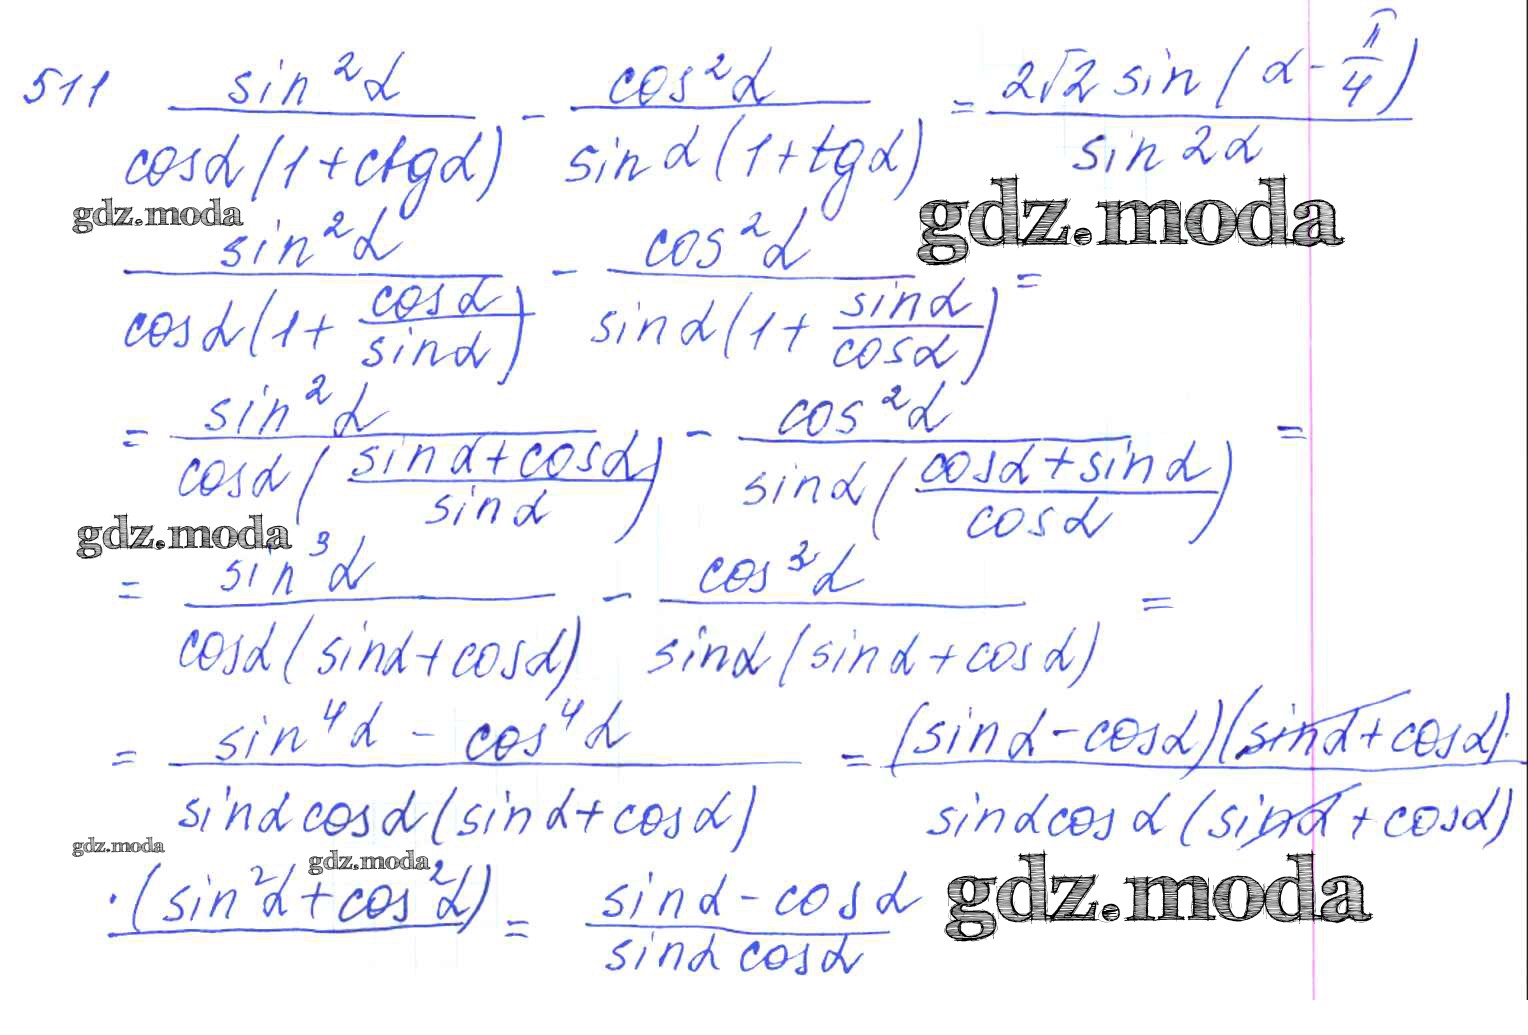 511 sin²α / cosα(1+ctgα) - cos²α / sinα(1+tgα) = 2√2 sin(α - π/4) / sin2α
gdz.moda gdz.moda
sin²α / cosα(1+ cosα/sinα) - cos²α / sinα(1+ sinα/cosα) =
= sin²α / cosα( (sinα+cosα)/sinα ) - cos²α / sinα( (cosα+sinα)/cosα ) =
gdz.moda
= sin³α / cosα(sinα+cosα) - cos³α / sinα(sinα+cosα) =
= sin⁴α - cos⁴α / sinαcosα(sinα+cosα) = (sinα-cosα)(sinα+cosα)· / sinαcosα(sinα+cosα)
gdz.moda gdz.moda gdz.moda
·(sin²α+cos²α) = sinα-cosα / sinαcosα